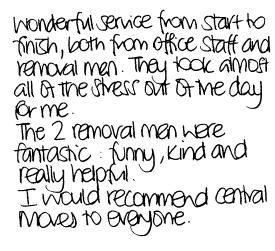 Wonderful service from start to
finish, both from office staff and
removal men. They took almost
all of the stress out of the day
for me.
The 2 removal men were
fantastic : funny, kind and
really helpful.
I would recommend central
moves to everyone.